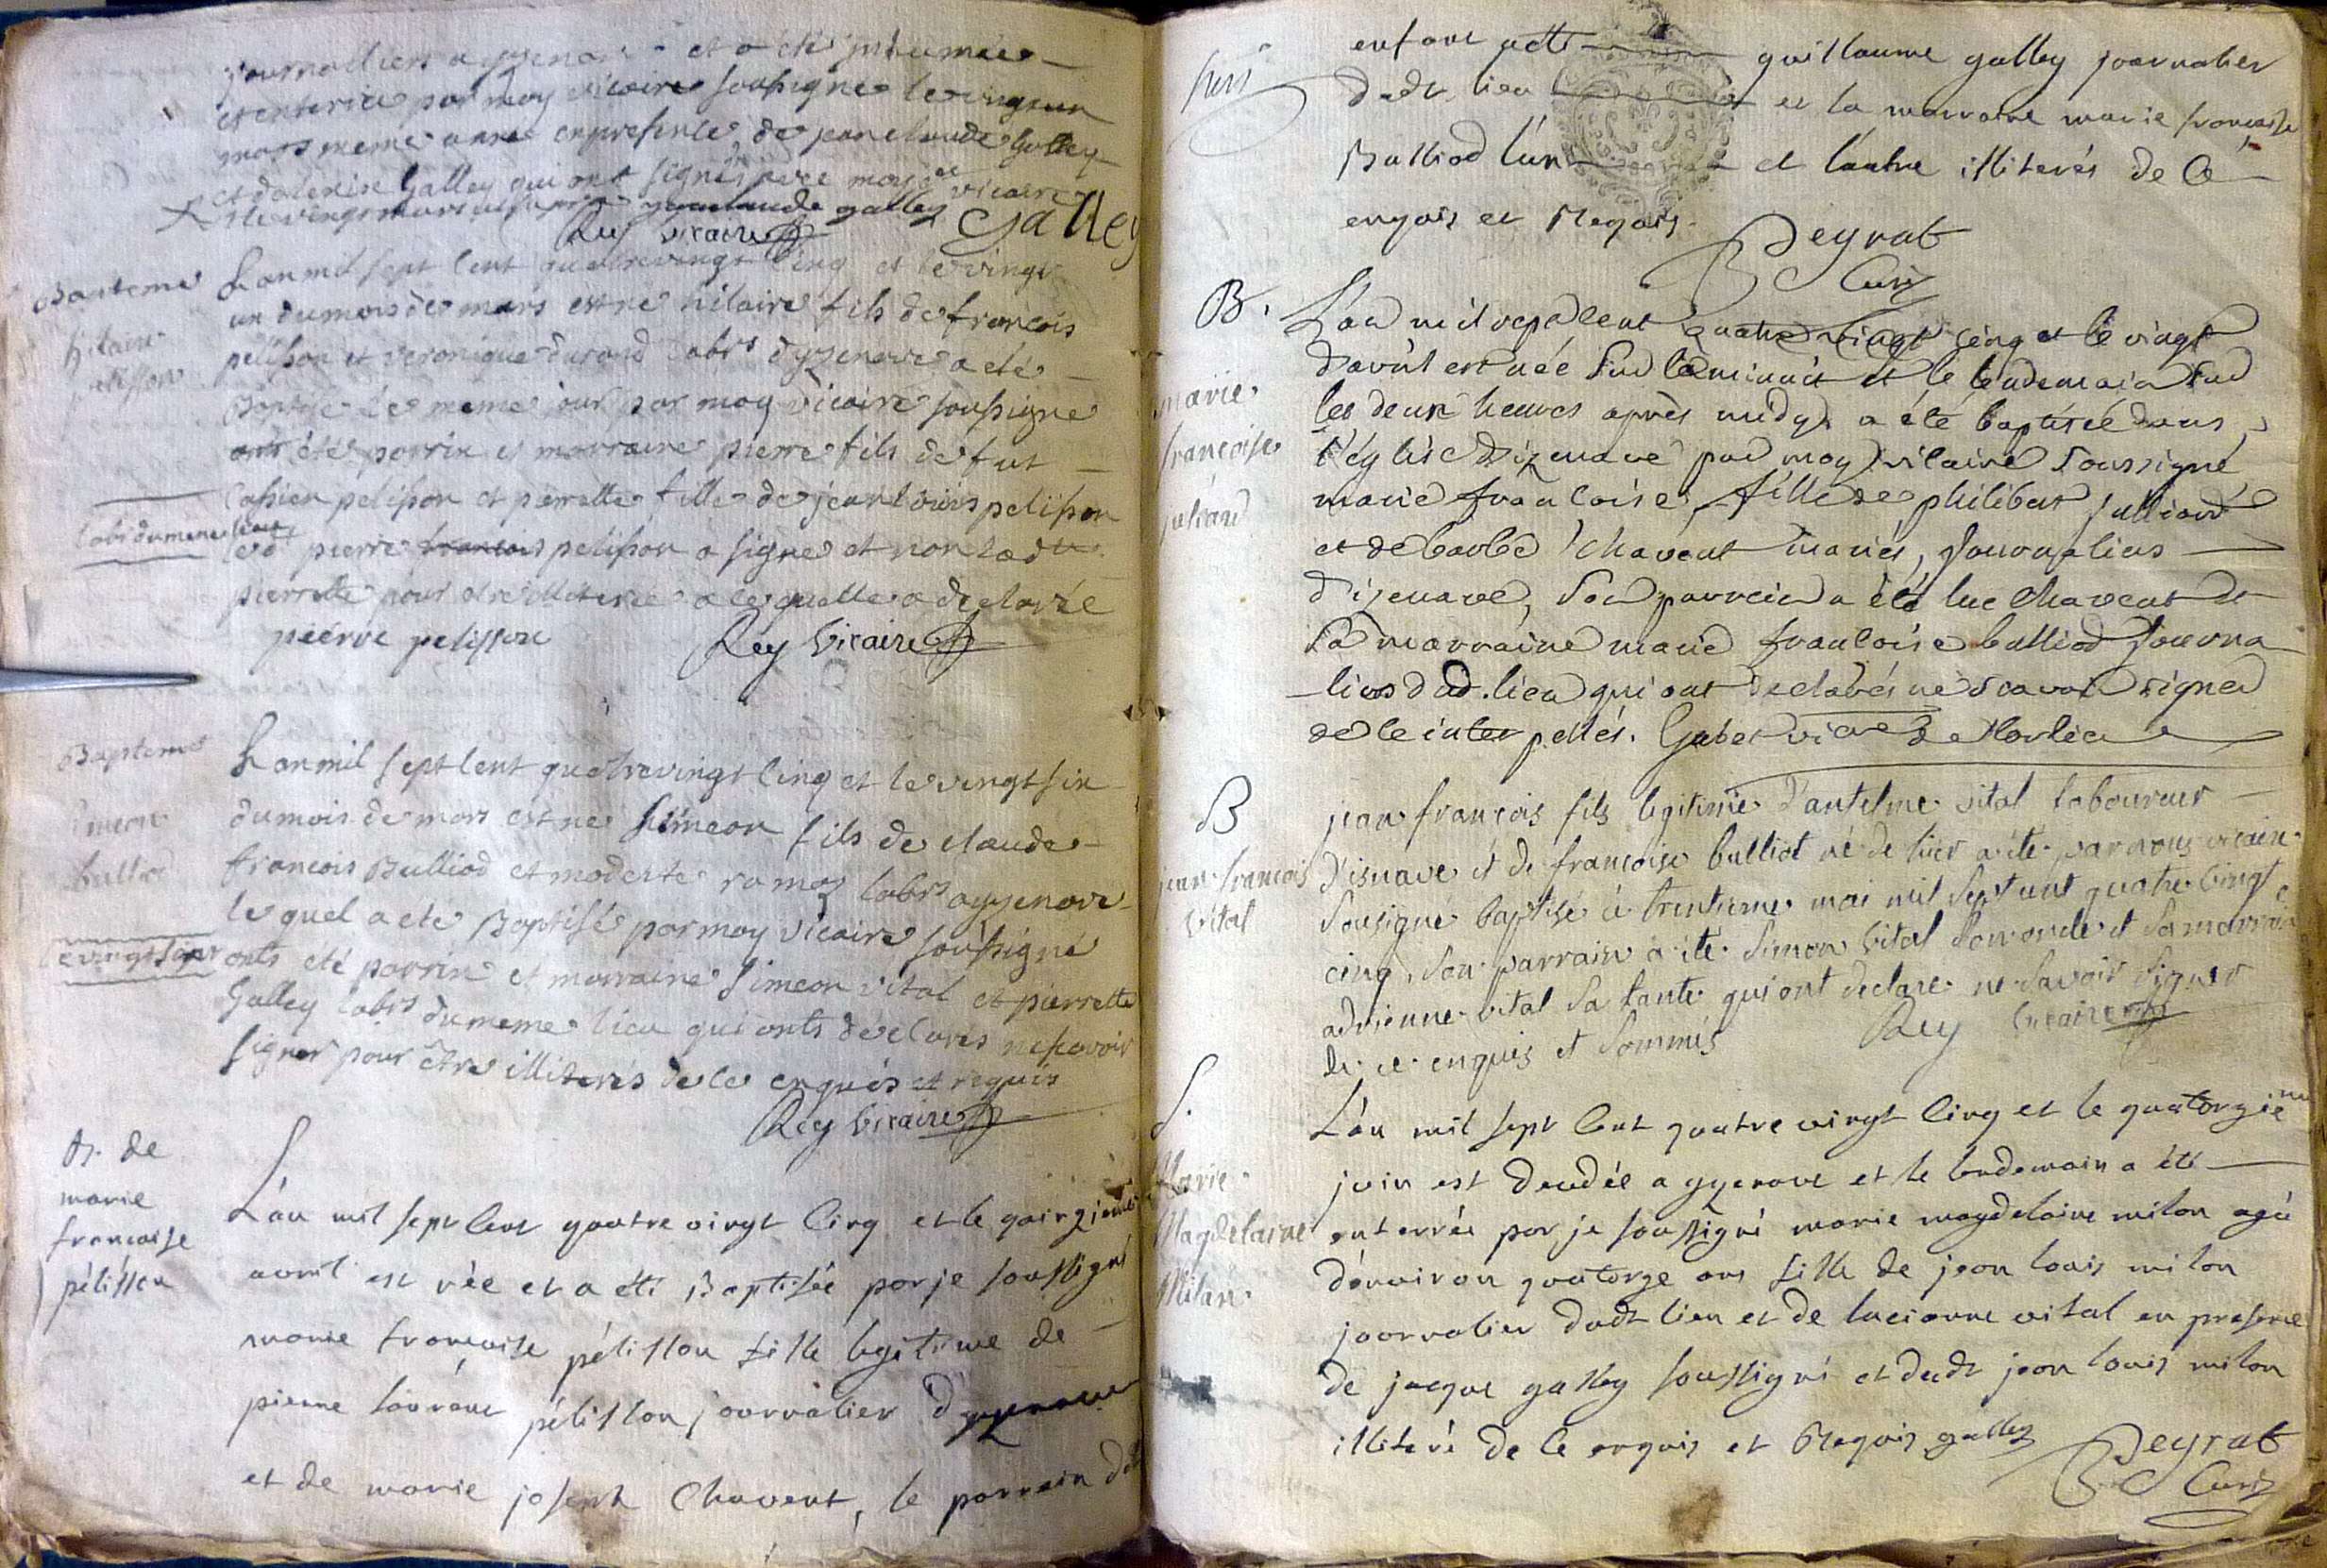 journalliers a yzenave et a été inhumée
et enterrée par moy vicaire soussigné le vingt un
mars meme année en presence de jean claude Galley
et d'alexise Galley qui ont signés avec moy dt vicaire
le vingt mars jean claude galley Galley
Rey vicaire
Bapteme
hilaire
pelisson
L'an mil sept cent quatrevingt cinq et le vingt
un du mois de mars est né hilaire fils de francois
pelisson et veronique durand labrs d'yzenave a été
Baptisé le meme jour par moy vicaire soussigné
onts été parrin et marraine pierre fils de fut
Cassien pelisson et pierrette fille de jean louis pelisson
labrs du meme lieu
led pierre francois pelisson a signé et non lad
pierrette pour etre illiterée a ce quelle a declaré
pierre pelisson Rey Vicaire
Bapteme
Simeon
bulliod
L'an mil sept cent quatrevingt cinq et le vingt six
du mois de mars est né Simeon fils de claude
francois Bulliod et modeste ramoz labrs a yzenave
le quel a été Baptisé par moy vicaire soussigné
le vingt sept
onts été parrin et marraine Simeon vital et pierrette
Galley labrs du meme lieu qui onts déclarés ne scavoir
signer pour être illiterés de ce enquis et requis
Rey Vicaire
B. de
marie
francoise
pélisson
L'an mil sept cent quatre vingt cinq et le quinzieme
avril est née et a été Baptisée par je soussigné
marie francoise pélisson fille legitime de
pierre pélisson journalier d'yzenave
et de marie joseph Chavent, le parrain de
enfant guillaume galley journalier
dudt lieu et la marraine marie francoise
Bulliod l'un et l'autre illiterés de ce
enquis et Requis.
Peyrat
Curé
B.
marie
francoise
juliand
L'an mil sept cent quatre vingt cinq et le vingt
d'avril est née sur le minuit et le lendemain sur
les deux heures après midy a été baptisée dans
l'église d'izenave par moy vicaire soussigné
marie francoise, fille de philibert julliand
et de barbe Chavent mariés, journaliers
d'izenave, son parrain a été luc Chavent et
sa marraine marie francoise bulliod journa
-liers dud. lieu qui ont declarés ne scavoir signer
de ce interpellés. Gubet vicre de Corlier
B
jean francois
Vital
jean françois fils legitime d'antelme vital laboureur
d'isnave et de françoise bulliot né de hier a été par nous vicaire
sousigné baptisé ce trentieme mai mil sept cent quatre vingt
cinq, son parrain a été Simon vital son oncle et sa marraine
adrienne vital sa tante qui ont declaré ne savoir signer
de ce enquis et sommés Rey Vicaire
S.
Marie
Magdelaine
Milan.
L'an mil sept cent quatre vingt cinq et le quatorzieme
juin est decedée a yzenave et le lendemain a été
enterrée par je soussigné marie magdelaine milon agée
d'environ quatorze ans fille de jean louis milon
journalier dudt lieu et de lucianne vital en presence
de jacque galley soussigné et dudt jean louis milon
illiteré de ce enquis et Requis galley Peyrat
Curé